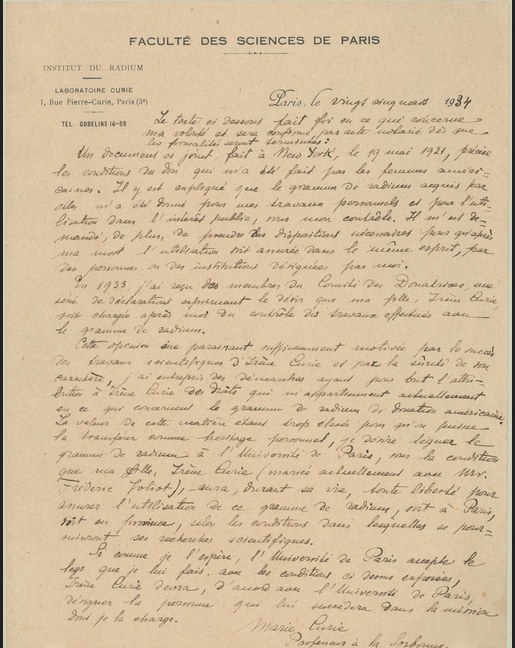 FACULTÉ DES SCIENCES DE PARIS
INSTITUT DU RADIUM
LABORATOIRE CURIE
1, Rue Pierre-Curie, Paris (5e)
TEL. GOBELINS 14-69
Paris, le vingt cinq mars 1934
Le texte ci dessous fait foi en ce qui concerne
ma volonté et sera confirmé par acte notarié dès que
les formalités seront terminées :
Un document ci joint fait à New York, le 19 mai 1921, précise
les conditions du don qui m'a été fait par les femmes améri-
caines. Il y est expliqué que le gramme de radium acquis par
elles m'a été donné pour mes travaux personnels et pour l'uti-
lisation dans l'intérêt public, sous mon contrôle. Il m'est de-
mandé, de plus, de prendre des dispositions nécessaires pour qu'après
ma mort l'utilisation soit assurée dans le même esprit, par
des personnes ou des institutions désignées par moi.
En 1933 j'ai reçu des membres du Comité des Donatrices, une
série de déclarations exprimant le désir que ma fille, Irène Curie,
soit chargée après moi du contrôle des travaux effectués avec
le gramme de radium.
Cette opinion me paraissant suffisamment motivée par le succès
des travaux scientifiques d'Irène Curie et par la sûreté de son
caractère, j'ai entrepris des démarches ayant pour but l'attri-
bution à Irène Curie des droits qui m'appartiennent actuellement
en ce qui concerne le gramme de radium de donation américaine.
La valeur de cette matière étant trop élevée pour qu'on puisse
la transférer comme héritage personnel, je désire léguer le
gramme de radium à l'Université de Paris, sous la condition
que ma fille, Irène Curie (mariée actuellement avec Mr.
Frédéric Joliot), aura, durant sa vie, toute liberté pour
assurer l'utilisation de ce gramme de radium, soit à Paris,
soit en province, selon les conditions dans lesquelles se pour-
suivront ses recherches scientifiques.
Si comme je l'espère, l'Université de Paris accepte le
legs que je lui fais, avec les conditions ci dessus exposées,
Irène Curie devra, d'accord avec l'Université de Paris,
désigner la personne qui lui succédera dans la mission
dont je la charge.
Marie Curie
Professeur à la Sorbonne